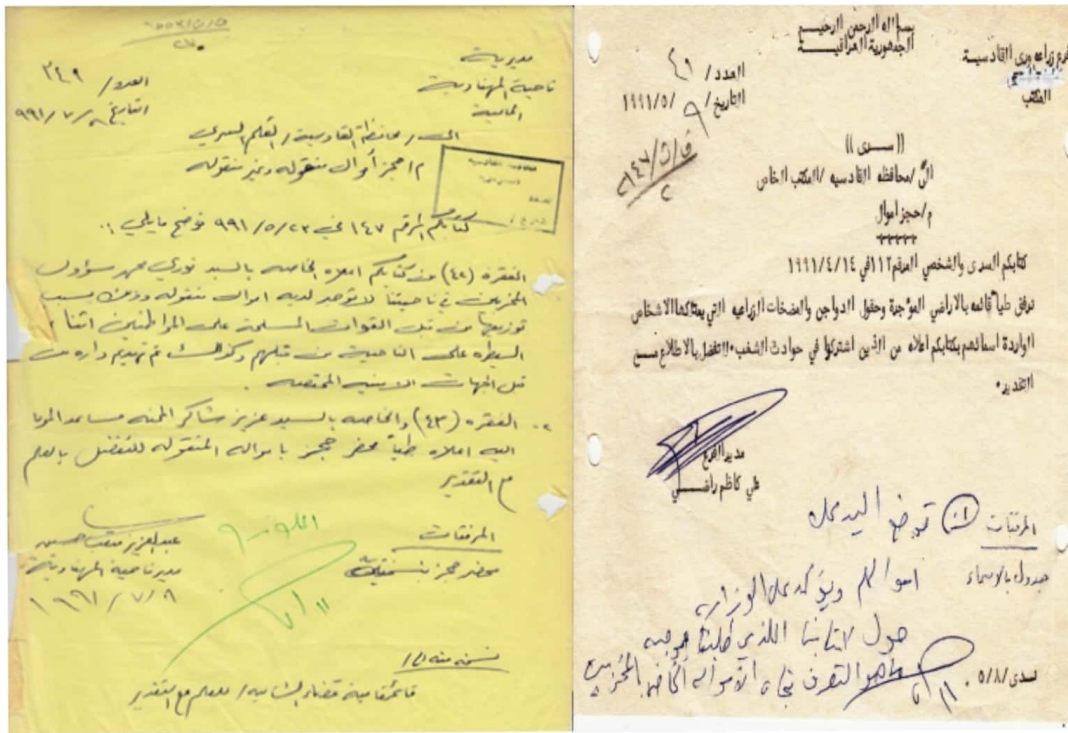 مديرية
ناحية المهناوية
العدد / ٣٤٩
التاريخ ٨ / ٧ / ٩٩١
الى / محافظة القادسية / القلم السري
م / حجز أموال منقوله وغير منقوله
كتابكم المرقم ١٤٧ في ٢٣ / ٥ / ٩٩١ نوضح مايلي :.
الفقرة (٤٢) من كتابكم اعلاه الخاصه بالسيد نوري
المخربين في ناحيتنا لا توجد لديه اموال منقوله وذلك بسبب
توزيعها من قبل القوات المسلحة على المواطنين اثناء
السيطره على الناحية من قبلهم وكذلك تم تهديم داره من
قبل الجهات الامنيه المختصه .
٢- الفقره (٤٣) والخاصه بالسيد عزيز شاكر مساعد الموما
اليه اعلاه طياً محضر حجز بامواله المنقوله للتفضل بالعلم
مع التقدير
المرفقات
محضر حجز
عبدالعزيز
مدير ناحية المهناوية
١٩٩١ / ٧ / ٨
نسخه منه الى /
قائمقامية قضاء الشاميه / للعلم مع التقدير
بسم الله الرحمن الرحيم
الجمهورية العراقية
فرع زراعه وري القادسية
المكتب
العدد / ٤١
التاريخ / ٩ / ٥ / ١٩٩١
(( سرى ))
الى / محافظه القادسيه / المكتب الخاص
م / حجز اموال
*****
كتابكم السرى والشخصي المرقم ١١٢ في ١٤ / ٤ / ١٩٩١
نرفق طيا قائمه بالاراضي المؤجرة وحقول الدواجن والمضخات الزراعيه التي يمتلكها الاشخاص
الواردة اسمائهم بكتابكم اعلاه من الذين اشتركوا في حوادث الشغب . للتفضل بالاطلاع مـــع
التقدير .
مدير الفرع
علي كاظم راضـــي
المرفقات
جدول بالاسماء
توضع اليد على
اموالهم ويؤكد على الوزاره
حول كتابنا الذي طلبنا بموجبه
ماهو التصرف تجاه الاموال الخاصه بالمخربين
سدى / ٥/٨ .